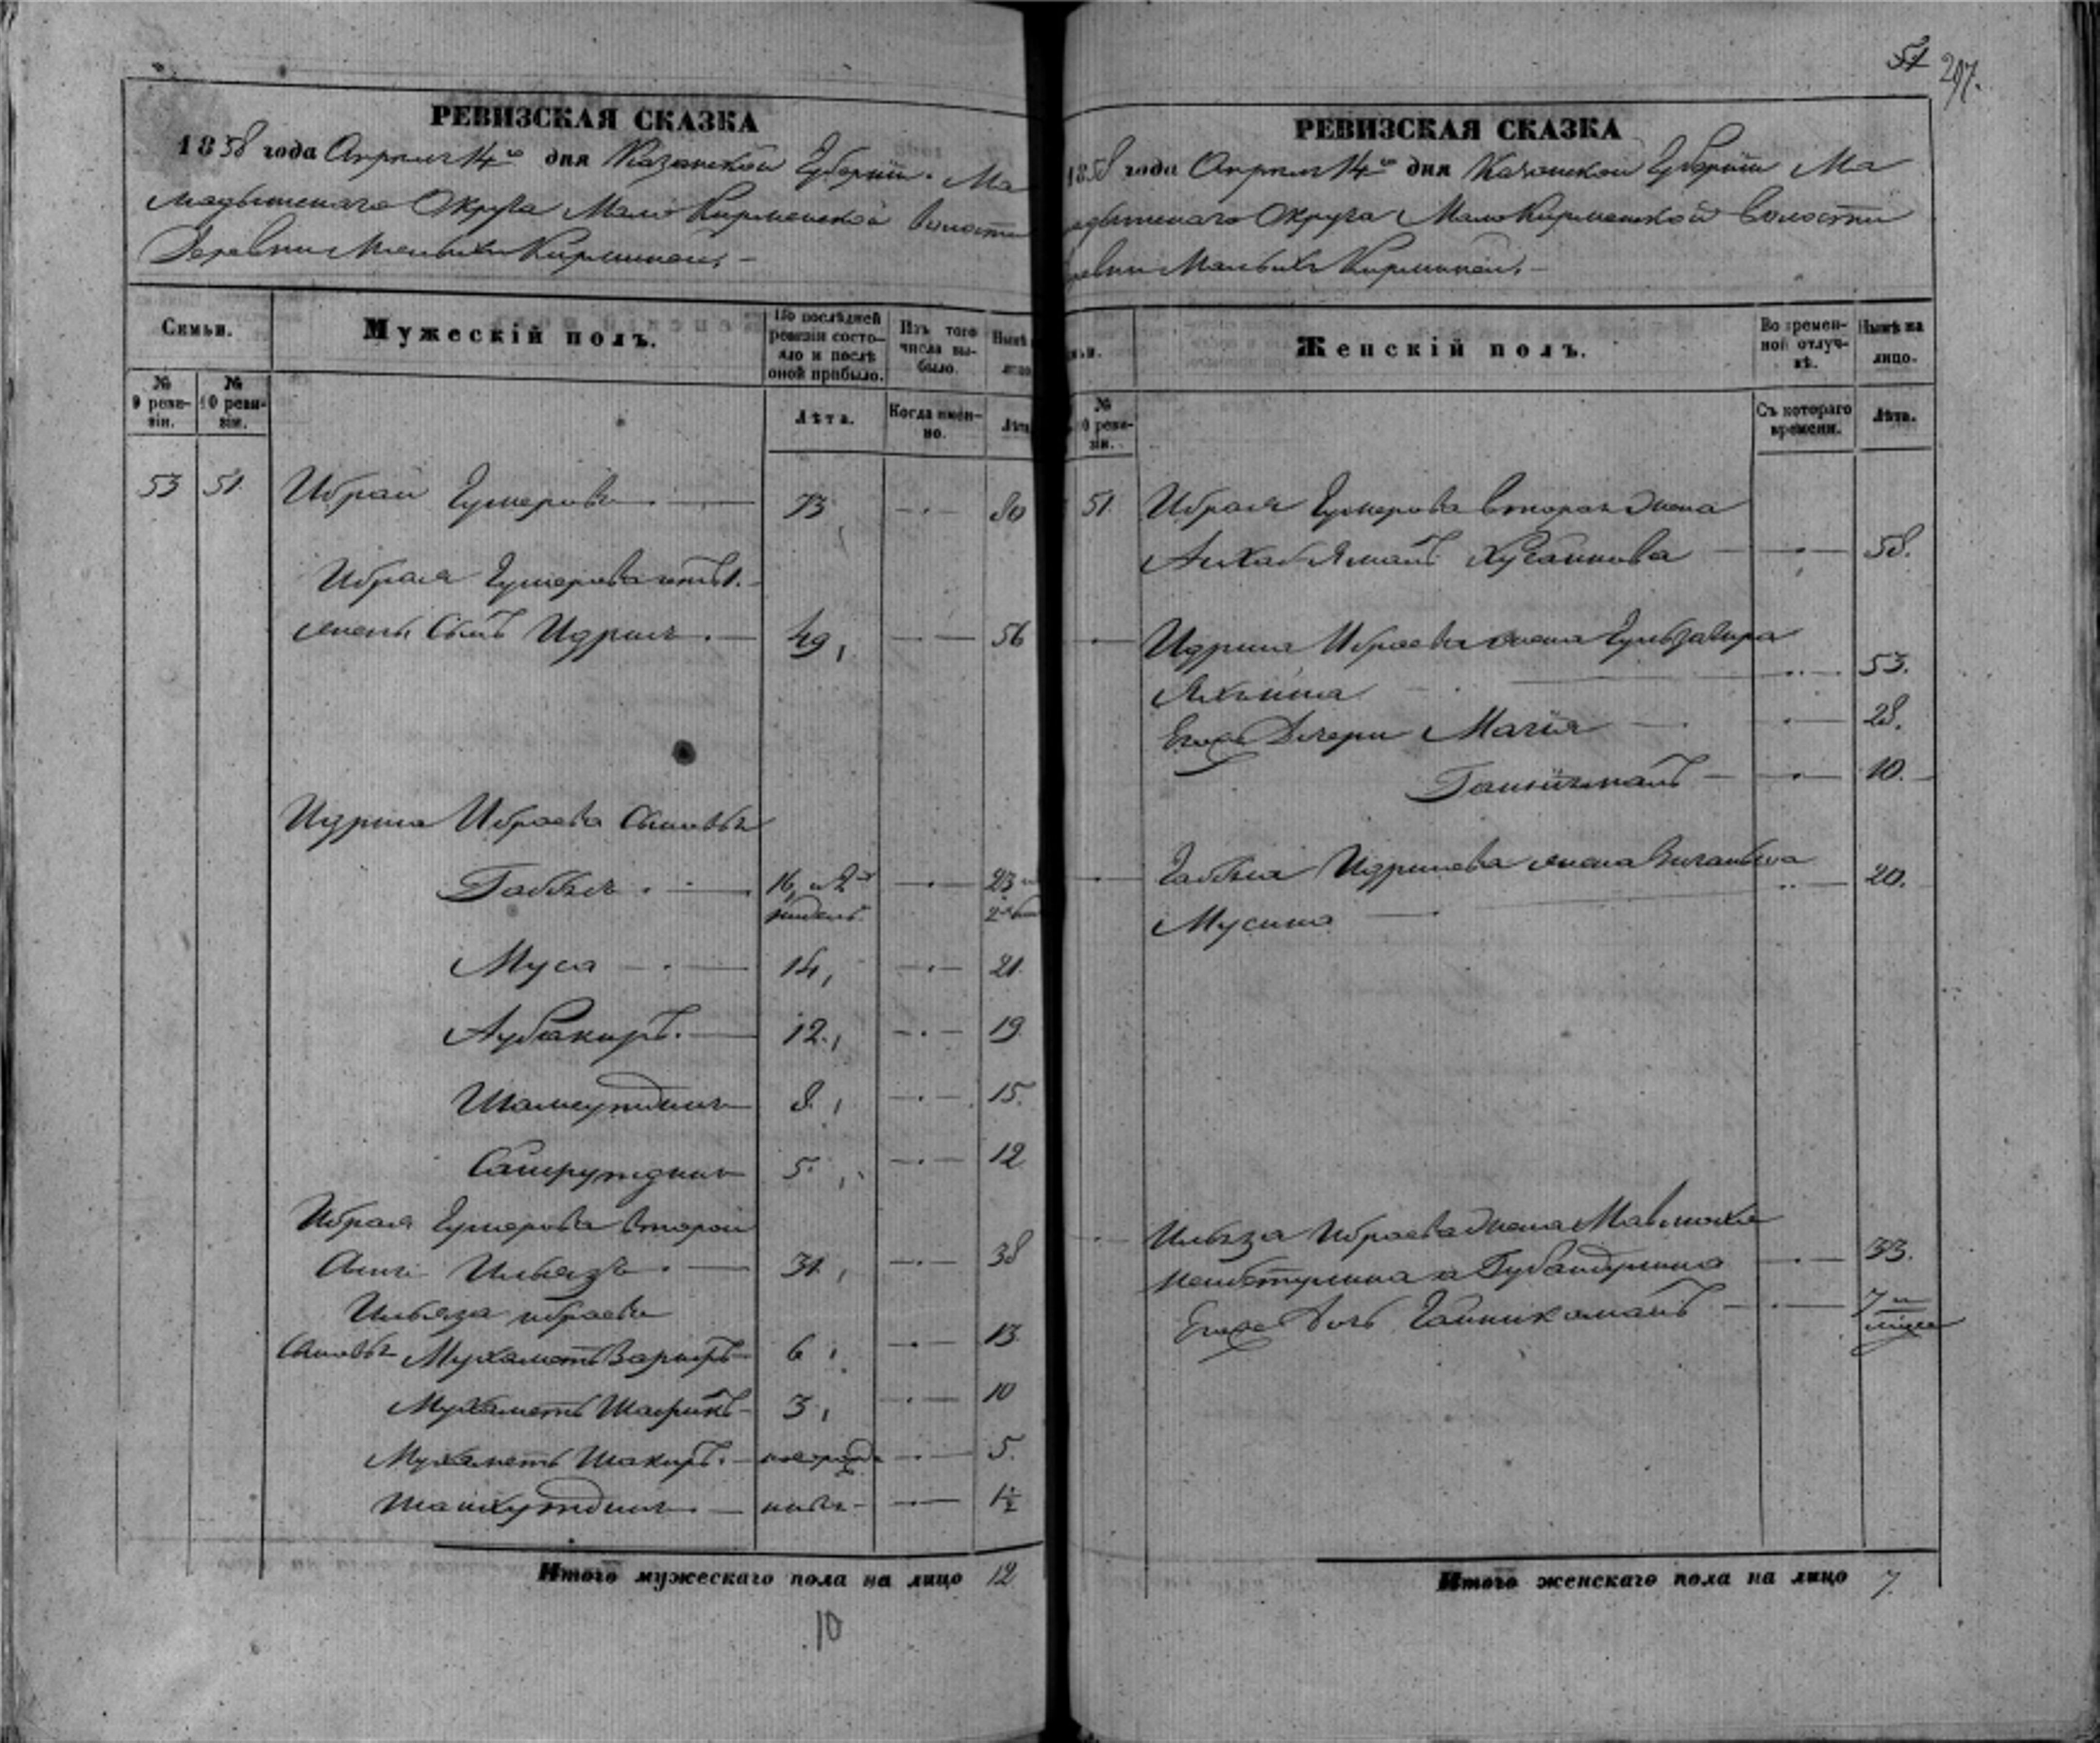 51 297.
РЕВИЗСКАЯ СКАЗКА
1858 года Апреля 14го дня Казанской Губернии Ма
мадышскаго Округа Мало Кирменской Волости
Деревни Малыхъ Кирменей,
Семьи.
Мужескій полъ.
По послѣдней ревизіи состояло и послѣ оной прибыло.
Изъ того числа выбыло.
Нынѣ
лицо
№ 9 ревизіи.
№ 10 ревизіи.
Лѣта.
Когда именно.
Лѣта
53 51. Ибрай Гумеровъ 73, 80
Ибрая Гумерова отъ 1.
жены Сынъ Идрисъ. 49, 56
Идриса Ибраева Сыновья
Габбясъ. 16, и 2 23
недель.
Муса 14, 21.
Аубакиръ. 12., 19
Шамсутдинъ 8., 15.
Сайфутдинъ 5., 12
Ибрая Гумерова второй
Сынъ Ильязъ. 31, 38
Ильяза Ибраева
Сыновья МухаметъЗариръ 6, 13
Мухаметъ Шарипъ 3, 10
Мухаметъ Шакиръ. после рев 5.
Шайхутдинъ. 1½
Итого мужескаго пола на лицо 12
10
РЕВИЗСКАЯ СКАЗКА
1858 года Апреля 14го дня Казанской Губернии Ма
адышскаго Округа Мало Кирменской Волости
ревни Малыхъ Кирменей,
ьи.
Женскій полъ.
Во временной отлучкѣ.
Нынѣ на лицо.
№ 10 ревизіи.
Съ котораго времени.
Лѣта.
51. Ибрая Гумерова вторая Жена
58.
Идриса Ибраева жена Гульзавира
Яхьина 53.
Егоже Дочери Магія 28.
10.
Габбяса Идрисова жена
Мусина 20.
Ильяза Ибраева Жена
33.
Егоже Дочь Гайникамалъ 7 и
Итого женскаго пола на лицо 7.